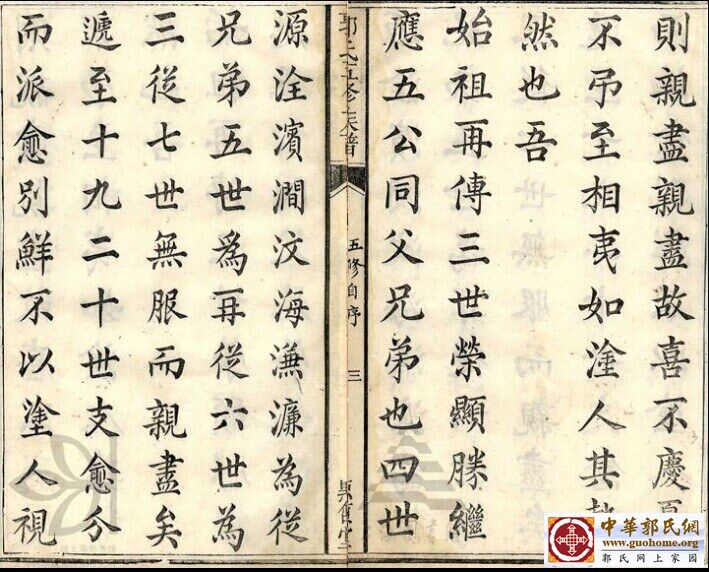 則親盡親盡故喜不慶
不弔至相夷如塗人其
然也吾
始祖再傳三世榮顯勝繼
應五公同父兄弟也四世
郭氏五修族譜
五修自序
三
源洤濱澗汶海濂為從
兄弟五世爲再從六世為
三從七世無服而親盡矣
遞至十九二十世支愈分
而派愈別鮮不以塗人視
中華郭氏網
www.guohome.org
郭氏网上家园